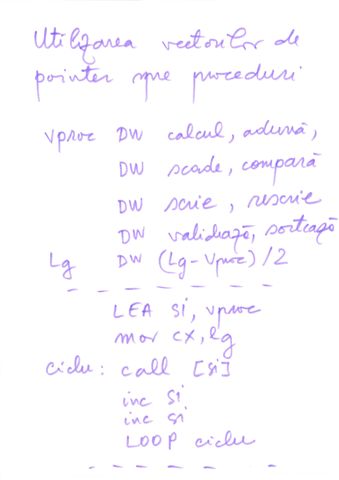 Utilizarea vectorilor de
pointer spre proceduri
vproc DW calcul, adună,
DW scade, compară
DW scrie, rescrie
DW validează, sortează
Lg DW (Lg-Vproc)/2
LEA si, vproc
mov cx, lg
ciclu: call [si]
inc si
inc si
LOOP ciclu